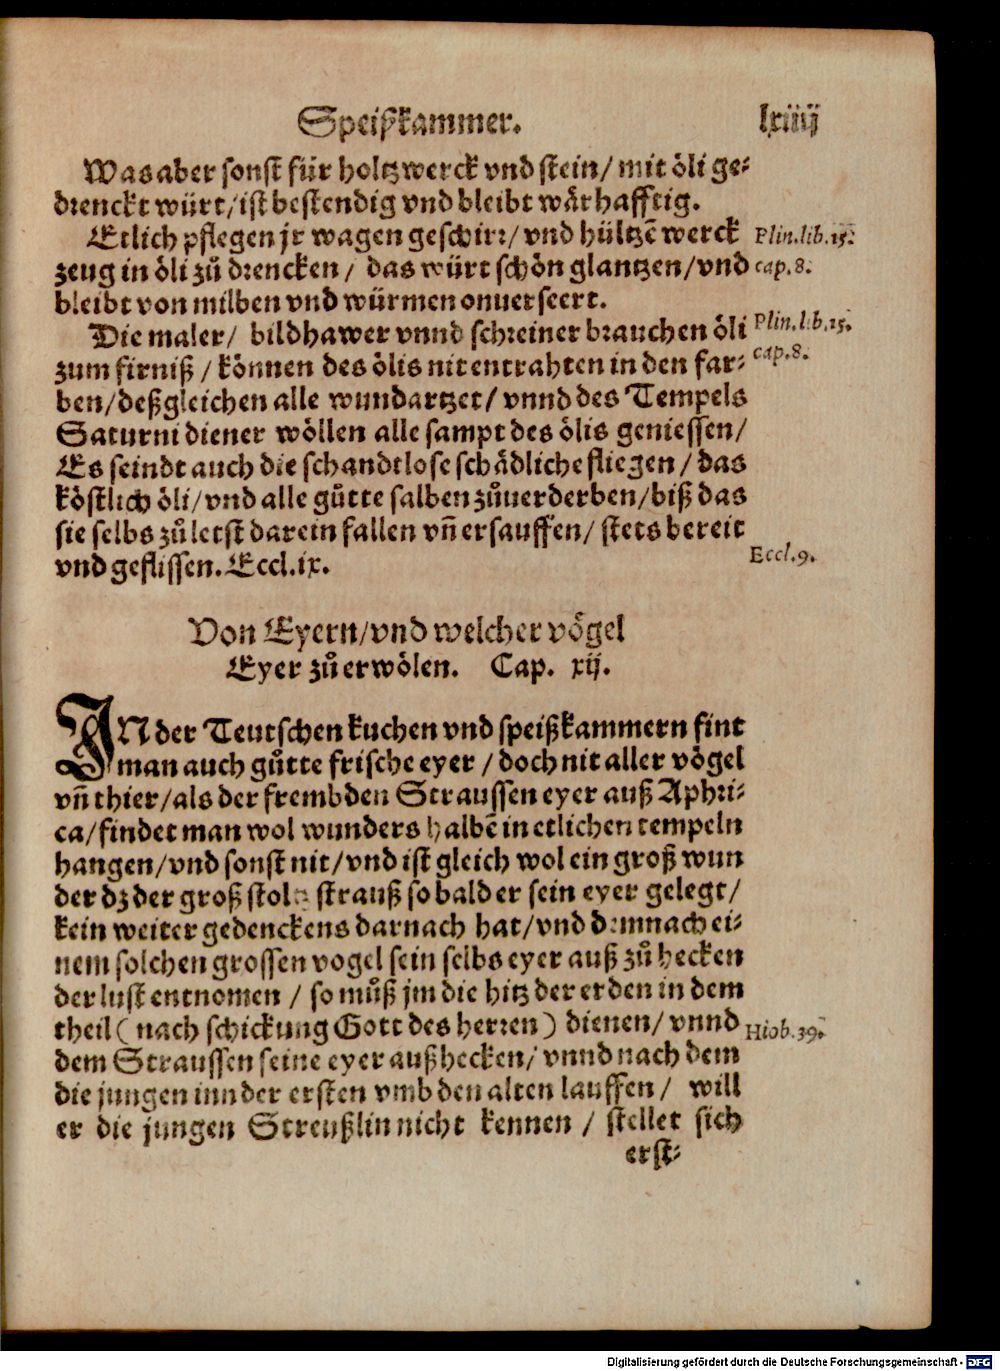 Speißkammer. lxiiij
Was aber sonst für holtzwerck vnd stein/ mit öli ge⸗
drenckt würt/ist bestendig vnd bleibt wärhafftig.
Etlich pflegen jr wagen geschirr/ vnd hültzẽ werck
Plin.lib.15.
zeug in öli zů drencken/ das würt schön glantzen/vnd
cap.8.
bleibt von milben vnd würmen onuerseert.
Die maler/ bildhawer vnnd schreiner brauchen öli
Plin.lib.15.
zum firniß / können des ölis nit entrahten in den far⸗
cap.8.
ben/deßgleichen alle wundartzet/ vnnd des Tempels
Saturni diener wöllen alle sampt des ölis geniessen/
Es seindt auch die schandtlose schädliche fliegen / das
köstlich öli/vnd alle gůtte salben zůuerderben/biß das
sie selbs zů letst darein fallen vñ ersauffen/ stets bereit
vnd geflissen. Eccl.ix.
Eccl.9.
Von Eyern/vnd welcher vögel
Eyer zů erwölen. Cap. xij.
IN der Teutschen kuchen vnd speißkammern fint
man auch gůtte frische eyer / doch nit aller vögel
vñ thier/als der frembden Straussen eyer auß Aphri⸗
ca/findet man wol wunders halbẽ in etlichen tempeln
hangen/vnd sonst nit/vnd ist gleich wol ein groß wun
der dz der groß stoltz strauß so bald er sein eyer gelegt/
kein weiter gedenckens darnach hat/vnd demnach ei⸗
nem solchen grossen vogel sein selbs eyer auß zů hecken
der lust entnomen / so můß jm die hitz der erden in dem
theil ( nach schickung Gott des herren ) dienen/ vnnd
Hiob.39.
dem Straussen seine eyer außhecken/ vnnd nach dem
die jungen inn der ersten vmb den alten lauffen / will
er die jungen Streußlin nicht kennen / stellet sich
erst⸗
Digitalisierung gefördert durch die Deutsche Forschungsgemeinschaft - DFG